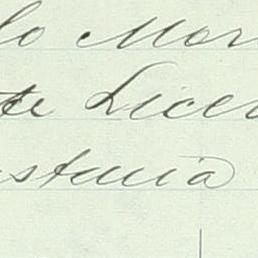 lo Mor
te Licen
stancia